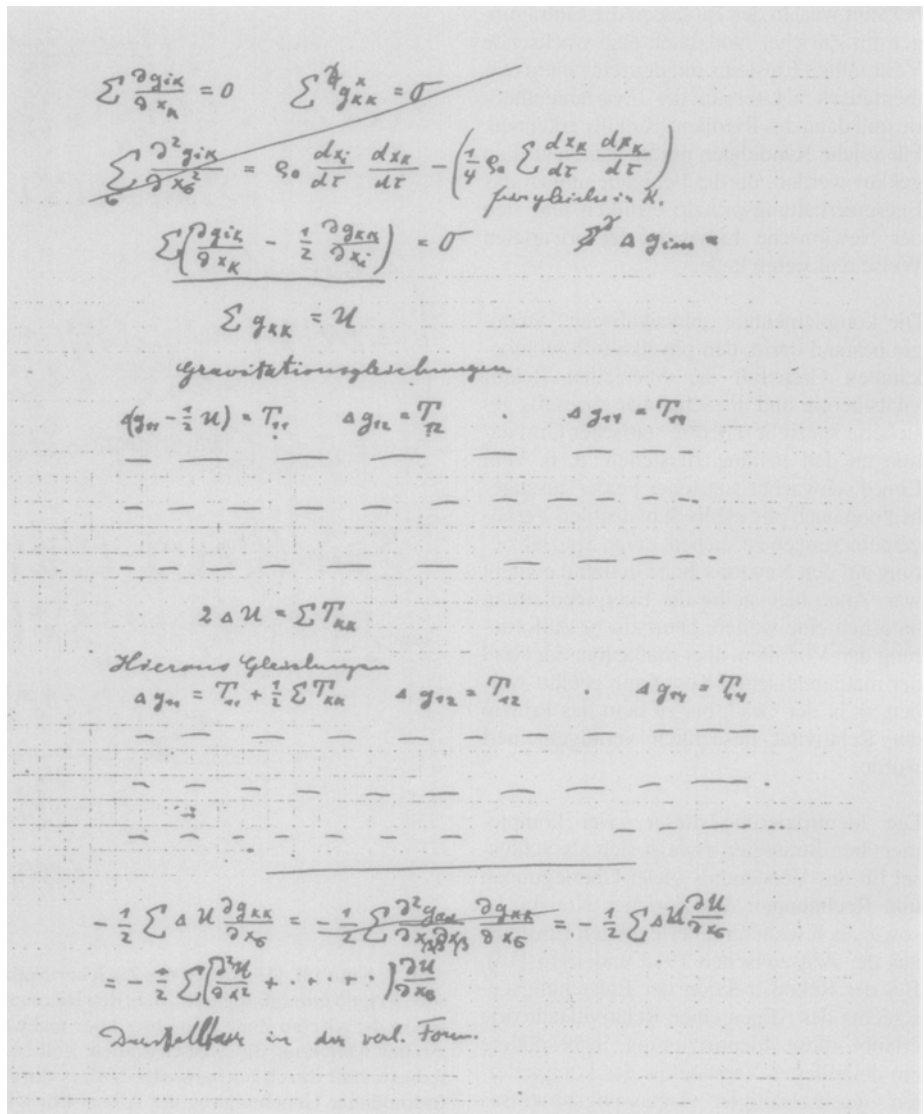 ∑ ∂g_iκ/∂x_κ = 0 ∑ g^x_κκ = 0
∑_σ ∂²g_iκ/∂x_σ² = ρ₀ dx_i/dτ dx_κ/dτ − (¼ ρ₀ ∑ dx_κ/dτ dx_κ/dτ)
für gleiche i u κ.
∑(∂g_iκ/∂x_κ − ½ ∂g_κκ/∂x_i) = 0 Δ g_im =
∑ g_κκ = U
Gravitationsgleichungen
Δ(g₁₁ − ½ U) = T₁₁ Δg₁₂ = T₁₂ . Δg₁₄ = T₁₄
— — — — —
— — — — — — — — —
— — — — — — — .
2 Δ U = ∑ T_κκ
Hieraus Gleichungen
Δg₁₁ = T₁₁ + ½ ∑ T_κκ Δg₁₂ = T₁₂ . Δg₁₄ = T₁₄
— — — — — —
— — — — — — — —
— — — — — — — —
− ½ ∑ Δ U ∂g_κκ/∂x_σ = − ½ ∑ ∂²g_αα/∂x_β∂x_β ∂g_κκ/∂x_σ = − ½ ∑ ΔU ∂U/∂x_σ
= − ½ ∑(∂²U/∂x² + · + · + ·) ∂U/∂x_σ
Darstellbar in der verl. Form.